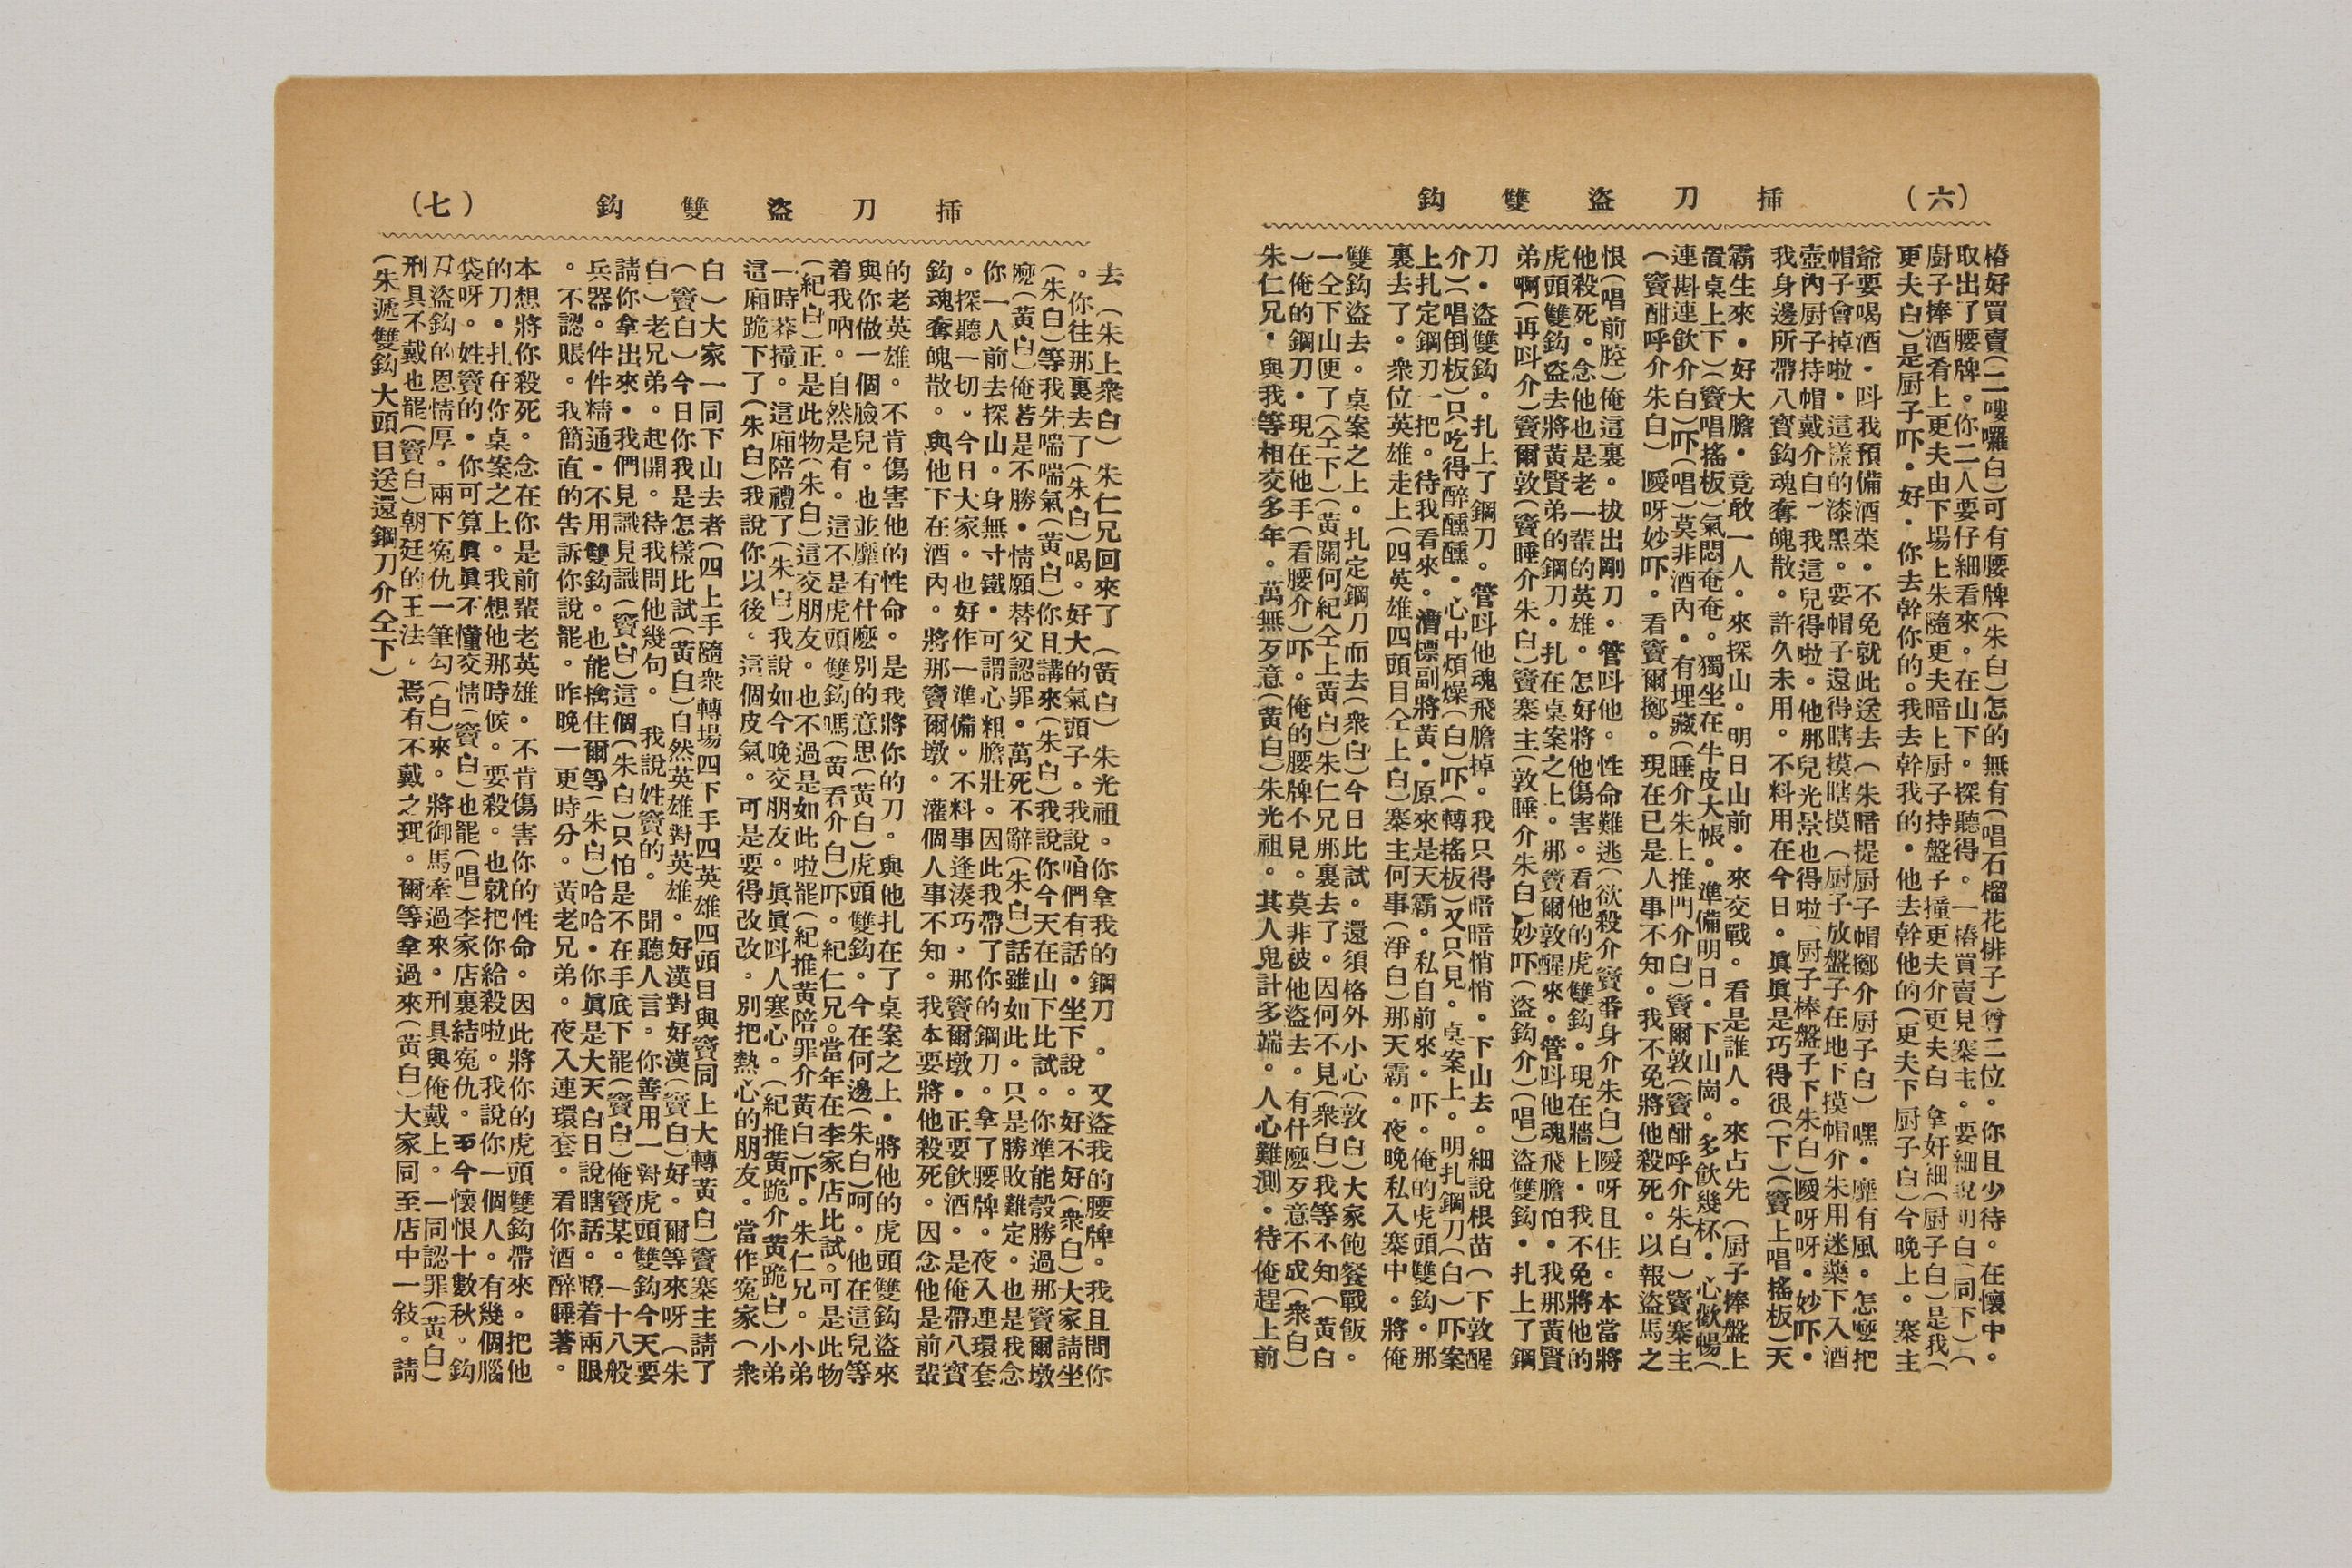 （六）
插刀盜雙鈎
樁好買賣（二嘍囉白）可有腰牌（朱白）怎的無有（唱石榴花排子）尊二位．你且少待。在懷中。
取出了腰牌。你二人要仔細看來。在山下。探聽得。一樁買賣見寨主。要細說明白（同下）（
廚子捧酒肴上更夫由下場上朱隨更夫暗上厨子持盤子撞更夫介更夫白　拿奸細（厨子白）是我（
更夫白）是厨子吓．好．你去幹你的。我去幹我的。他去幹他的（更夫下厨子白）今晚上。寨主
爺要喝酒．呌我預備酒菜。不免就此送去（朱暗提厨子帽擲介厨子白）嘿。靡有風。怎麽把
帽子會掉啦．這樣的漆黑。要帽子還得瞎摸瞎摸（厨子放盤子在地下摸帽介朱用迷藥下入酒
壺內厨子持帽戴介白）我這兒得啦。他那兒光景也得啦　厨子棒盤子下朱白）噯呀呀。妙吓．
我身邊所帶八寳鈎魂奪魄散。許久未用。不料用在今日。眞眞是巧得很（下）（竇上唱搖板）天
霸生來．好大膽．竟敢一人。來探山。明日山前。來交戰。看是誰人。來占先（厨子捧盤上
置桌上下）（竇唱搖板）氣悶奄奄。獨坐在牛皮大帳。準備明日。下山崗。多飲幾杯．心歡暢（
連斟連飲介白）吓（唱）莫非酒內．有埋藏（睡介朱上推門介白）竇爾敦（竇酣呼介朱白）竇寨主
（竇酣呼介朱白）噯呀妙吓。看竇爾擲。現在已是人事不知。我不免將他殺死。以報盜馬之
恨（唱前腔）俺這裏。拔出剛刀。管呌他。性命難逃（欲殺介竇番身介朱白）噯呀且住。本當將
他殺死。念他也是老一輩的英雄。怎好將他傷害。看他的虎雙鈎。現在牆上．我不免將他的
虎頭雙鈎盜去將黃賢弟的鋼刀。扎在桌案之上。那竇爾敦醒來。管呌他魂飛膽怕．我那黃賢
弟啊（再呌介）竇爾敦（竇睡介朱白）竇寨主（敦睡介朱白）妙吓（盜鈎介）（唱）盜雙鈎．扎上了鋼
刀．盜雙鈎。扎上了鋼刀。管呌他魂飛膽掉。我只得暗暗悄悄。下山去。細說根苗（下敦醒
介）（唱倒板）只吃得醉醺醺．心中煩燥（白）吓（轉搖板）又只見。桌案上．明扎鋼刀（白）吓案
上扎定鋼刀一把。待我看來。漕標副將黃．原來是天霸。私自前來。吓。俺的虎頭雙鈎。那
裏去了。衆位英雄走上（四英雄四頭目仝上白）寨主何事（淨白）那天霸。夜晚私入寨中。將俺
雙鈎盜去。桌案之上。扎定鋼刀而去（衆白）今日比試。還須格外小心（敦白）大家飽餐戰飯。
一仝下山便了（仝下）（黃關何紀仝上黃白）朱仁兄那裏去了。因何不見（衆白）我等不知（黃白
）俺的鋼刀．現在他手（看腰介）吓。俺的腰牌不見。莫非被他盜去。有什麽歹意不成（衆白）
朱仁兄．與我等相交多年。萬無歹意（黃白）朱光祖。其人鬼計多端。人心難測。待俺趕上前
（七）
插刀盜雙鈎
去（朱上衆白）朱仁兄回來了（黃白）朱光祖。你拿我的鋼刀。又盜我的腰牌。我且問你
。你往那裏去了（朱白）喝。好大的氣頭子。我說咱們有話。坐下說。好不好（衆白）大家請坐
（朱白）等我先喘喘氣（黃白）你且講來（朱白）我說你今天在山下比試。你準能彀勝過那竇爾墩
麽（黃白）俺若是不勝．情願替父認罪。萬死不辭（朱白）話雖如此。只是勝敗難定。也是我念
你一人前去探山。身無寸鐵．可謂心粗膽壯。因此我帶了你的鋼刀。拿了腰牌。夜入連環套
。探聽一切。今日大家。也好作一準備。不料事逢湊巧．那竇爾墩．正要飲酒。是俺帶八寳
鈎魂奪魄散。與他下在酒內。將那竇爾墩。灌個人事不知。我本要將他殺死。因念他是前輩
的老英雄。不肯傷害他的性命。是我將你的刀。與他扎在了桌案之上．將他的虎頭雙鈎盜來
與你做一個臉兒。也並靡有什麽別的意思（黃白）虎頭雙鈎。今在何邊（朱白）呵。他在這兒等
着我吶。自然是有。這不是虎頭雙鈎嗎（黃看介白）吓。紀仁兄。當年在李家店比試。可是此物
（紀白）正是此物（朱白）這交朋友。也不過是如此啦罷（紀推黃陪罪介黃白）吓。朱仁兄。小弟
一時莽撞。這廂陪禮了（朱白）我說如今晚交朋友。眞眞呌人寒心。（紀推黃跪介黃跪白）小弟
這廂跪下了（朱白）我說你以後．這個皮氣。可是要得改改．別把熱心的朋友。當作寃家（衆
白）大家一同下山去者（四上手隨衆轉場四下手四英雄四頭目與竇同上大轉黃白）竇寨主請了
（竇白）今日你我是怎樣比試（黃白）自然英雄對英雄。好漢對好漢（竇白）好。爾等來呀（朱
白）老兄弟。起開。待我問他幾句。我說姓竇的。聞聽人言．你善用一對虎頭雙鈎今天要
請你拿出來．我們見識見識（竇白）這個（朱白）只怕是不在手底下罷（竇白）俺竇某。一十八般
兵器。件件精通．不用雙鈎。也能擒住爾等（朱白）哈哈．你眞是大天白日說瞎話。瞪着兩眼
。不認賬。我簡直的告訴你說罷。昨晚一更時分。黃老兄弟。夜入連環套。看你酒醉睡著。
本想將你殺死。念在你是前輩老英雄。不肯傷害你的性命。因此將你的虎頭雙鈎帶來。把他
的刀．扎在你桌案之上。我想他那時候。要殺。也就把你給殺啦。我說你一個人。有幾個腦
袋呀。姓竇的．你可算眞眞不懂交情（竇白）也罷（唱）李家店裏結寃仇。至今懷恨十數秋。鈎
刀盜鈎的恩情厚。兩下寃仇一筆勾（白）來。將御馬牽過來．刑具與俺戴上。一同認罪（黃白）
刑具不戴也罷（竇白）朝廷的王法．焉有不戴之理。爾等拿過來（黃白）大家同至店中一敍。請
（朱遞雙鈎大頭目送還鋼刀介仝下）